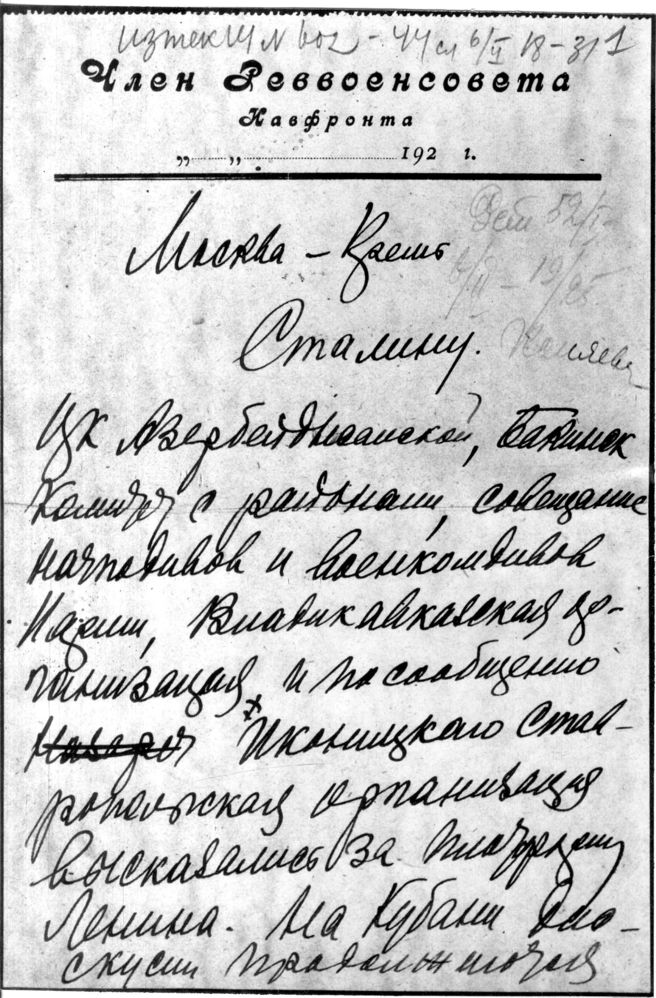 из тек IУ N 602 - 44 сл 6/II 18-31 1
Член Реввоенсовета
Кавфронта
„ „ 192 г.
Москва – Кремль
Сталину.
ЦК Азербейджанской, Бакинск
Комитет с районами, совещание
начподивов и военкомдивов
Армии, Владикавказская ор-
ганизация и по сообщению
Иконицкого Став-
ропольская организация
высказались за платформу
Ленина. На Кубани дис-
скусии продолжаются